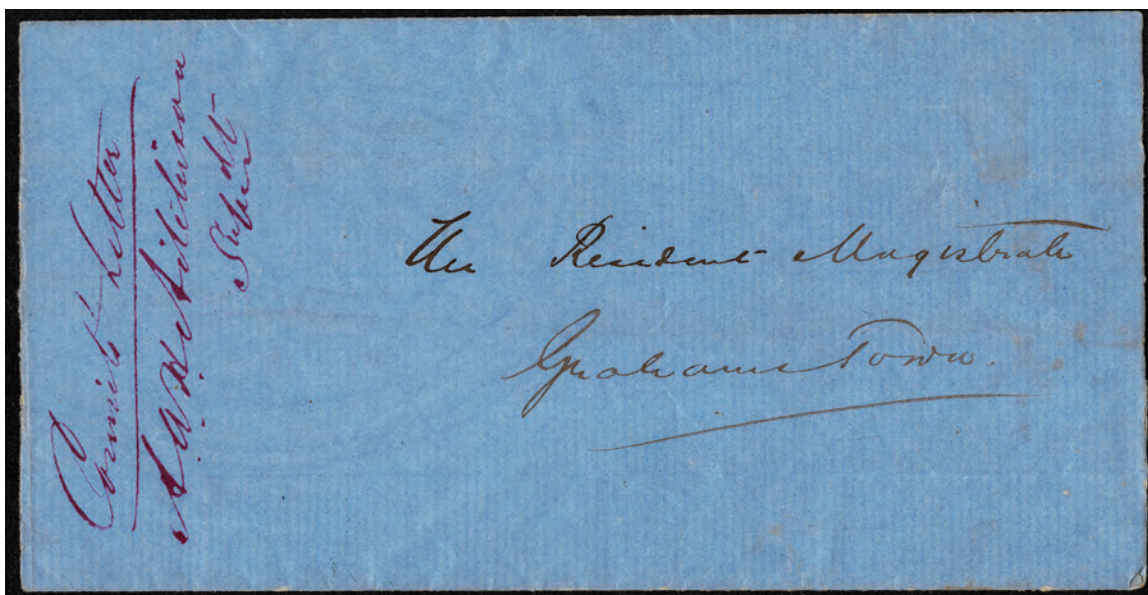 Convict's Letter
Aitchison
Supdt
The Resident Magistrate
Grahams Town.